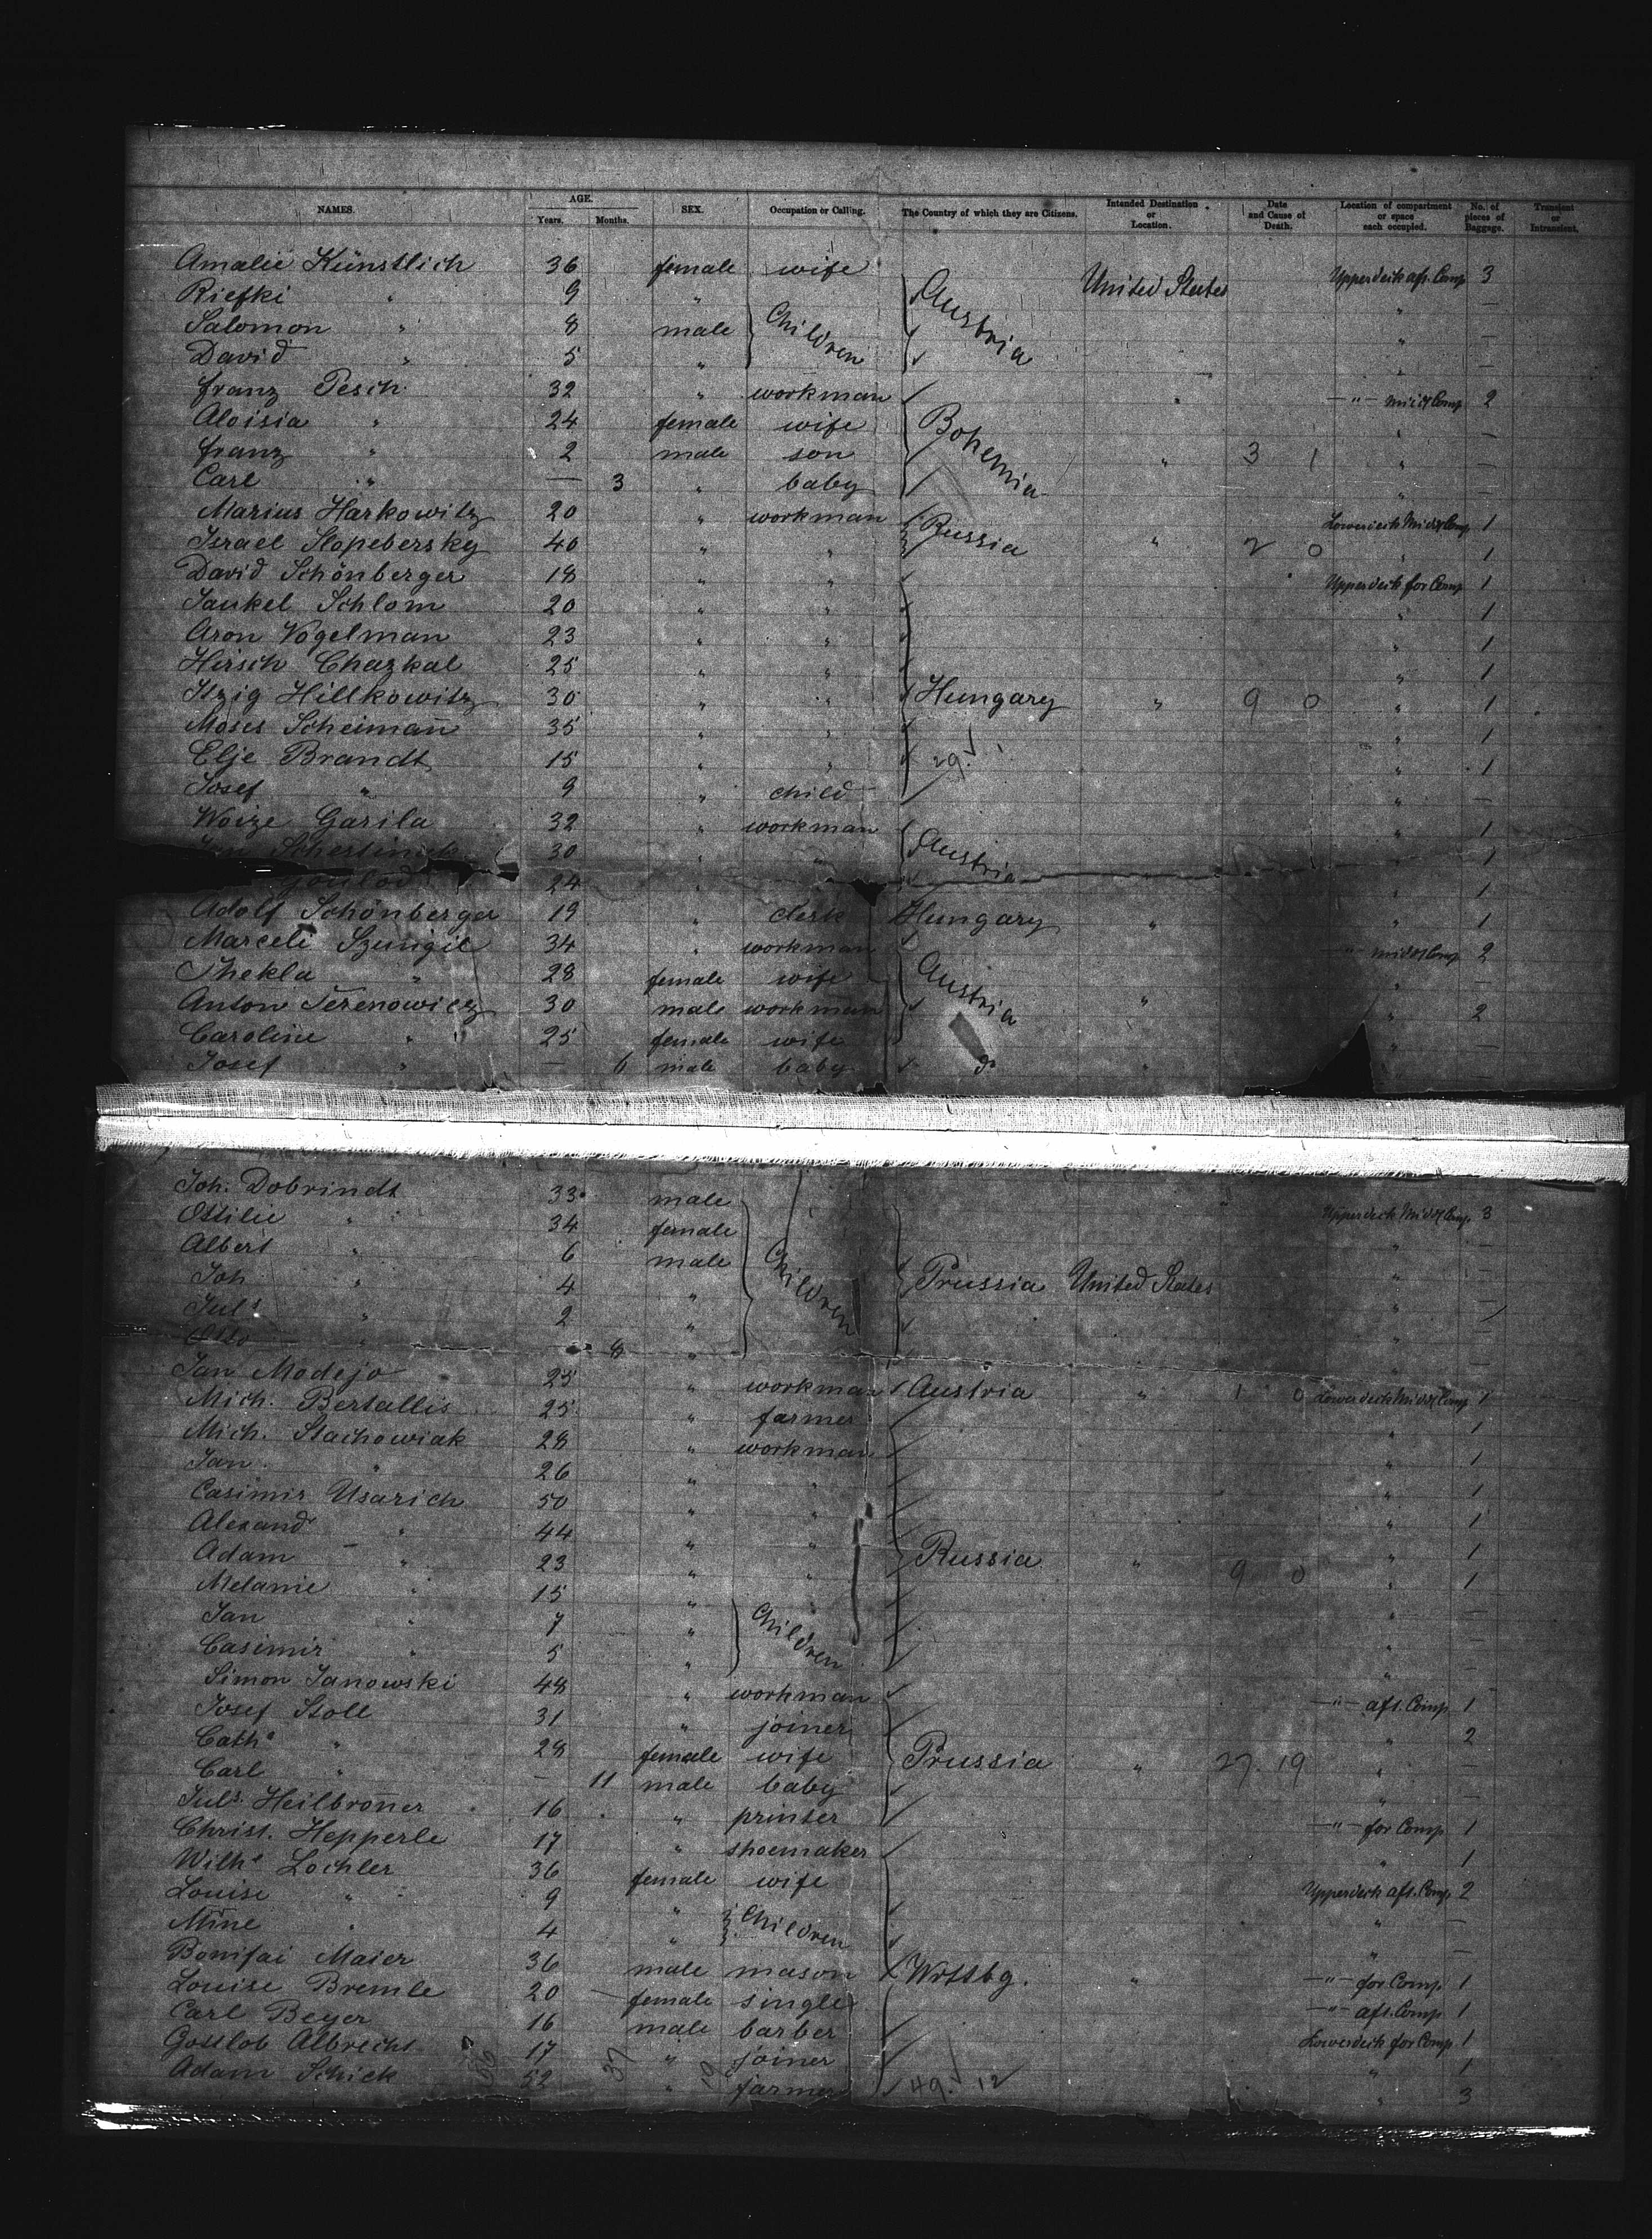 NAMES. AGE. Years. Months. SEX. Occupation or Calling. The Country of which they are Citizens. Intended Destination or Location. Date and Cause of Death. Location of compartment or space each occupied. No. of pieces of Baggage. Transient or Intransient.
Amalie Künstlich 36 female wife Austria United States Upperdeck aft. Comp 3
Riefki " 9 " Children " —
Salomon " 8 male " —
David " 5 " " —
Franz Pesch 32 " workman Bohemia " —"— midd Comp 2
Aloisia " 24 female wife " —
Franz " 2 male son " 3 1 " —
Carl " — 3 " baby " —
Marius Harkowitz 20 " workman Russia Lowerdeck Midd Comp 1
Israel Slopebersky 40 " " " 2 0 " 1
David Schönberger 18 " " Upperdeck for Comp 1
Jankel Schlom 20 " " " 1
Aron Vogelman 23 " " " 1
Hirsch Chazkal 25 " " " 1
Itzig Hillkowitz 30 " " Hungary " 9 0 " 1
Moses Scheiman̄ 35 " " " 1
Elje Brandt 15 " " 29. " 1
Josef " 9 " child " —
Woize Garila 32 " workman Austria " 1
30 " " " 1
24 " " 1
Adolf Schönberger 19 " clerk Hungary " " 1
Marceli Szungil 34 " workman Austria —"— midd Comp 2
Thekla " 28 female wife " —
Anton Terenowicz 30 male workman " " 2
Caroline " 25 female wife " —
Josef " — 6 male baby " —
Joh. Dobrindt 33 male " Upperdeck Midd Comp. 3
Ottilie " 34 female " —
Albert " 6 male Children " —
Joh " 4 " Prussia United States " —
Juls " 2 " " —
Otto " 8 " " —
Jan Modejo 25 " workman Austria " 1 0 Lowerdeck Midd Comp 1
Mich. Bertallis 25 " farmer " 1
Mich. Stachowiak 28 " workman " 1
Jan " 26 " " " 1
Casimir Usarich 50 " " " 1
Alexand " 44 " " Russia " " 1
Adam " 23 " " 9 0 " 1
Melanie " 15 " " " —
Jan " 7 " Children " —
Casimir " 5 " " —
Simon Janowski 48 " workman —"— aft. Comp 1
Josef Stoll 31 " joiner " 2
Cath " 28 female wife Prussia " 27. 19 " —
Carl " — 11 male baby " —
Juls. Heilbroner 16 " printer —"— for Comp 1
Christ. Hepperle 17 " shoemaker " 1
Wilhe Lochler 36 female wife Upperdeck aft. Comp 2
Louise " 9 " Children " —
Mine " 4 " " —
Bonifai Maier 36 male mason Wrttbg. " —"— for Comp. 1
Louise Bremle 20 female single —"— aft. Comp 1
Carl Beyer 16 male barber Lowerdeck for Comp 1
Gottlob Albrecht 17 " joiner " 1
Adam Schick 52 37 10 " farmer 49. 12 " 3